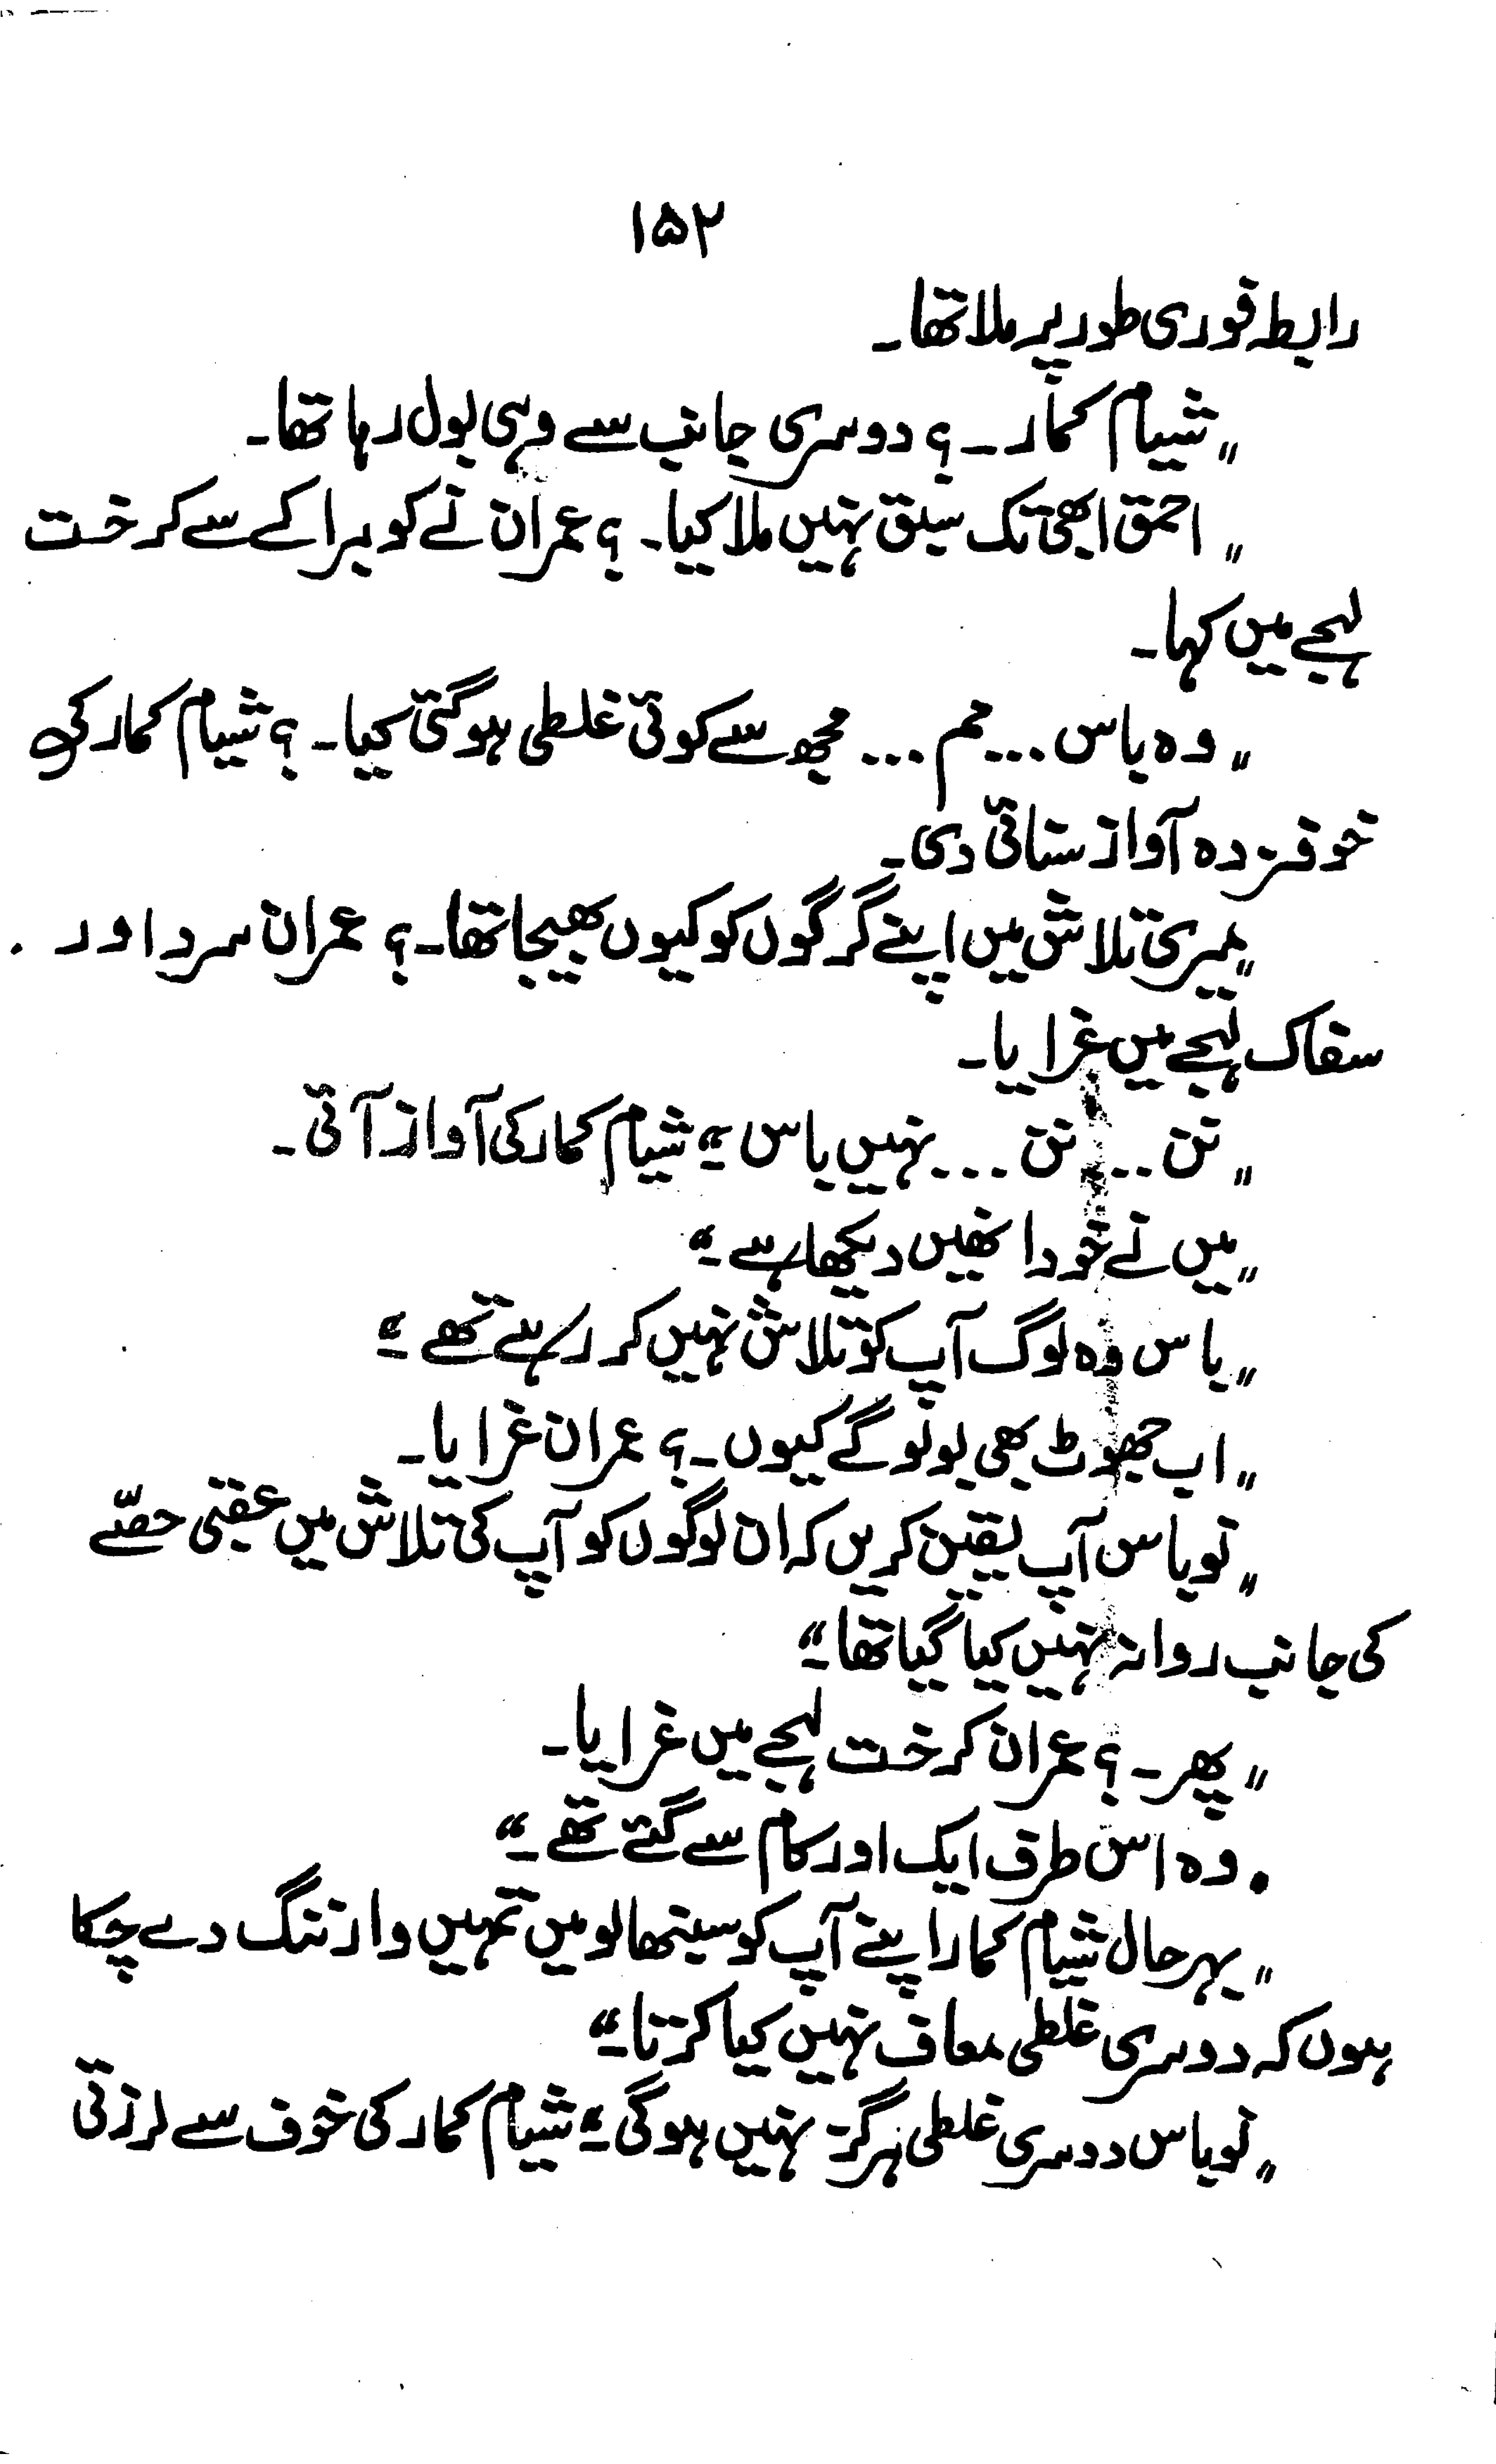 ۱۵۲
رابطہ فوری طور پر ملا تھا۔
"شیام کمار۔ ؟ دوسری جانب سے وہی بول رہا تھا۔
"احمق ابھی تک سبق نہیں ملا کیا۔ ؟ عمران نے کوبرا کے سے کرخت
لہجے میں کہا۔
"وہ باس ... مم ... مجھ سے کوئی غلطی ہو گئی کیا۔ ؟ شیام کمار کی
خوفزدہ آواز سنائی دی۔
"میری تلاش میں اپنے گرگوں کو کیوں بھیجا تھا۔ ؟ عمران سرد اور
سفاک لہجے میں غرایا۔
"نن ... نن ... نہیں باس۔" شیام کمار کی آواز آئی۔
"میں نے خود انھیں دیکھا ہے۔"
"باس وہ لوگ آپ کو تلاش نہیں کر رہے تھے۔"
"اب جھوٹ بھی بولو گے کیوں۔ ؟ عمران غرایا۔
"تو باس آپ یقین کریں کہ ان لوگوں کو آپ کی تلاش میں عقبی حصّے
کی جانب روانہ نہیں کیا گیا تھا۔"
"پھر۔ ؟ عمران کرخت لہجے میں غرایا۔
"وہ اس طرف ایک اور کام سے گئے تھے۔"
"بہر حال شیام کمار اپنے آپ کو سنبھالو میں تمہیں وارننگ دے چکا
ہوں کہ دوسری غلطی معاف نہیں کیا کرتا۔"
"نو باس دوسری غلطی ہرگز نہیں ہو گی۔" شیام کمار کی خوف سے لرزتی